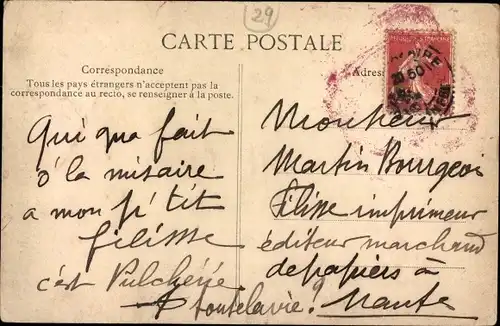 29
CARTE POSTALE
Correspondance
Tous les pays étrangers n'acceptent pas la
correspondance au recto, se renseigner à la poste.
Qui qua fait
d'la misaire
a mon p'tit
filisse
c'est Pulchérie
pour la vie!
Adres
20 50
Monsieur
Martin Bourgeois
Filisse imprimeur
éditeur marchand
de papiers à
Nante